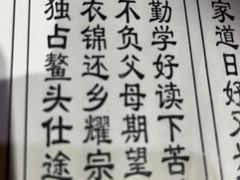 家道日好又
勤学好读下苦
不负父母期望
衣锦还乡耀宗
独占鳌头仕途